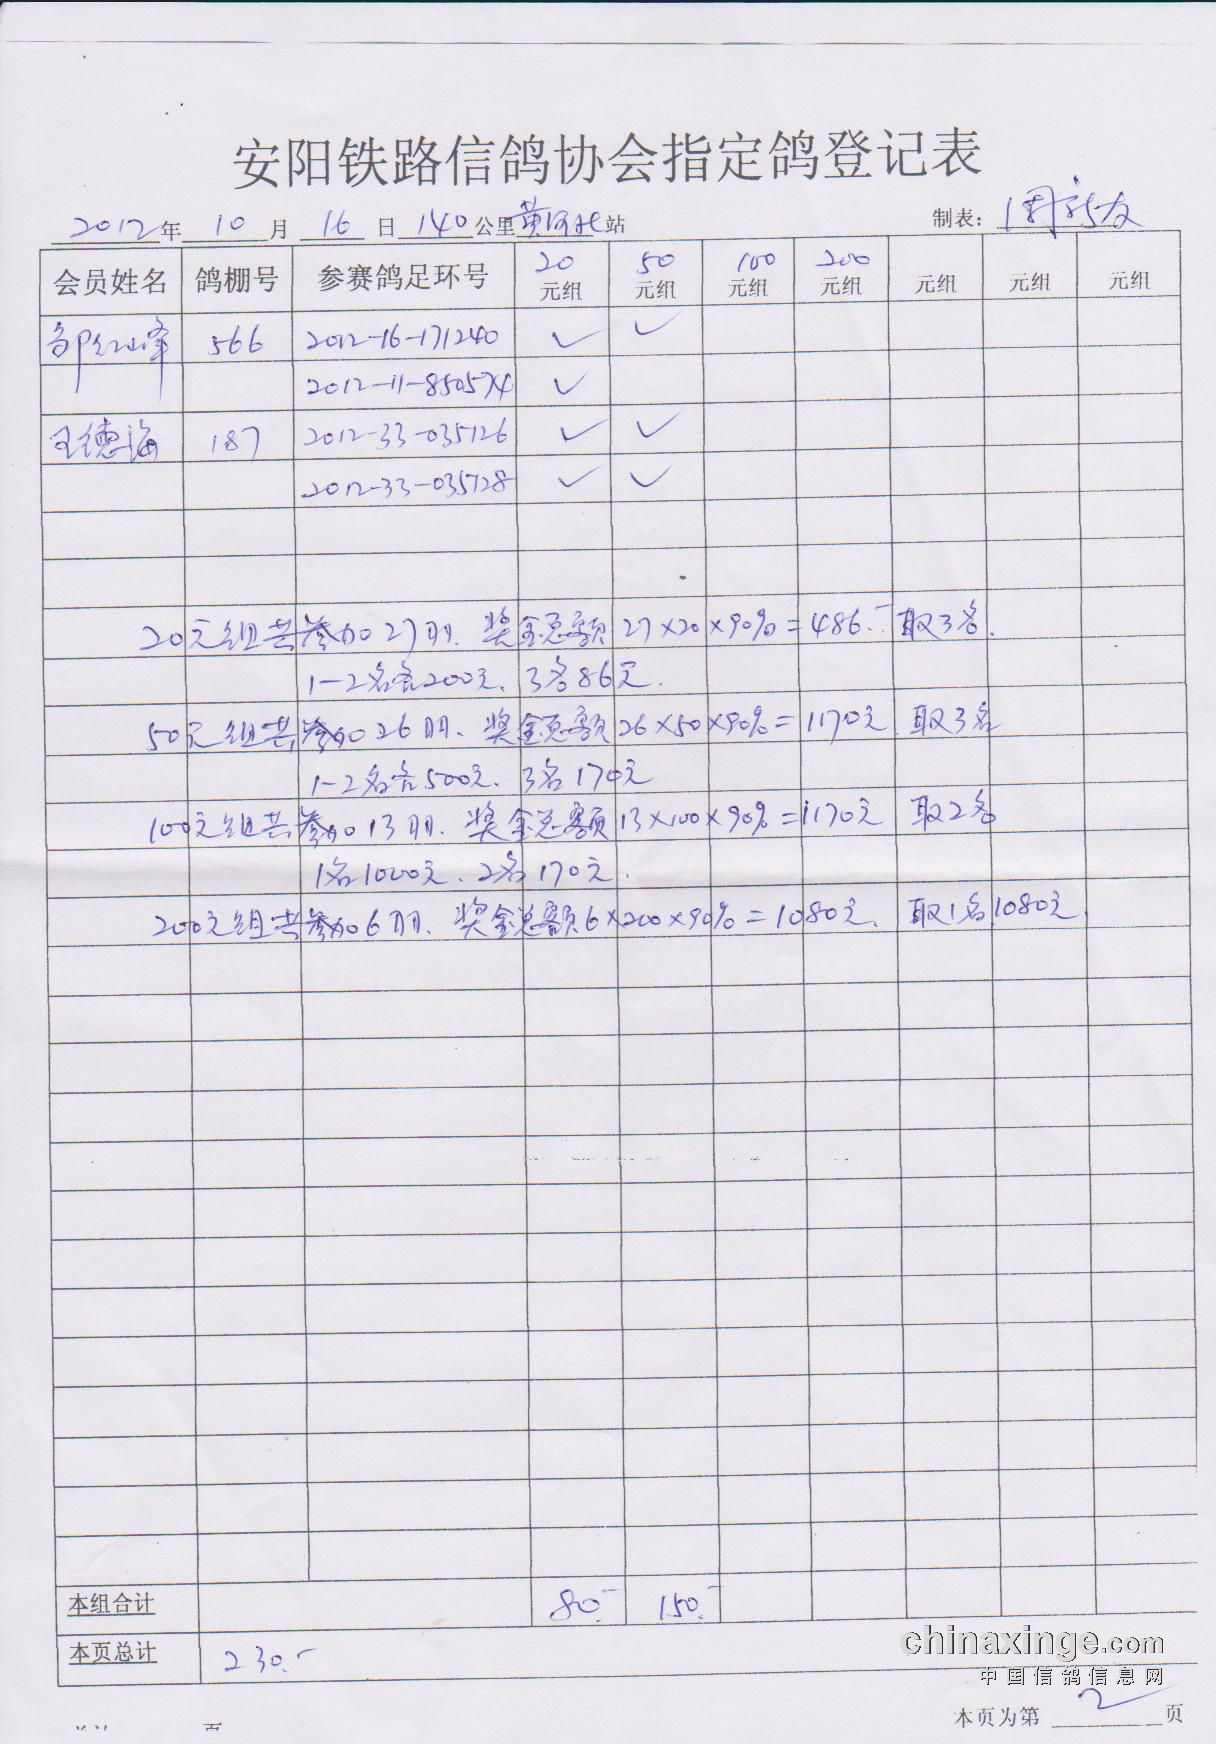 安阳铁路信鸽协会指定鸽登记表
2012年 10月 16日 140公里黄河北站 制表:周新友
会员姓名 鸽棚号 参赛鸽足环号 20元组 50元组 100元组 200元组 元组 元组 元组
邹红峰 566 2012-16-171240 ✓ ✓
2012-11-850574 ✓
王德海 187 2012-33-035126 ✓ ✓
2012-33-035128 ✓ ✓
20元组共参加27羽. 奖金总额27×20×90%=486.- 取3名.
1-2名各200元. 3名86元.
50元组共参加26羽. 奖金总额26×50×90%=1170元 取3名
1-2名各500元. 3名170元
100元组共参加13羽. 奖金总额13×100×90%=1170元 取2名
1名1000元. 2名170元.
200元组共参加6羽. 奖金总额6×200×90%=1080元. 取1名1080元.
本组合计 80.- 150.-
本页总计 230.-
chinaxinge.com
中国信鸽信息网
本页为第 2 页
页